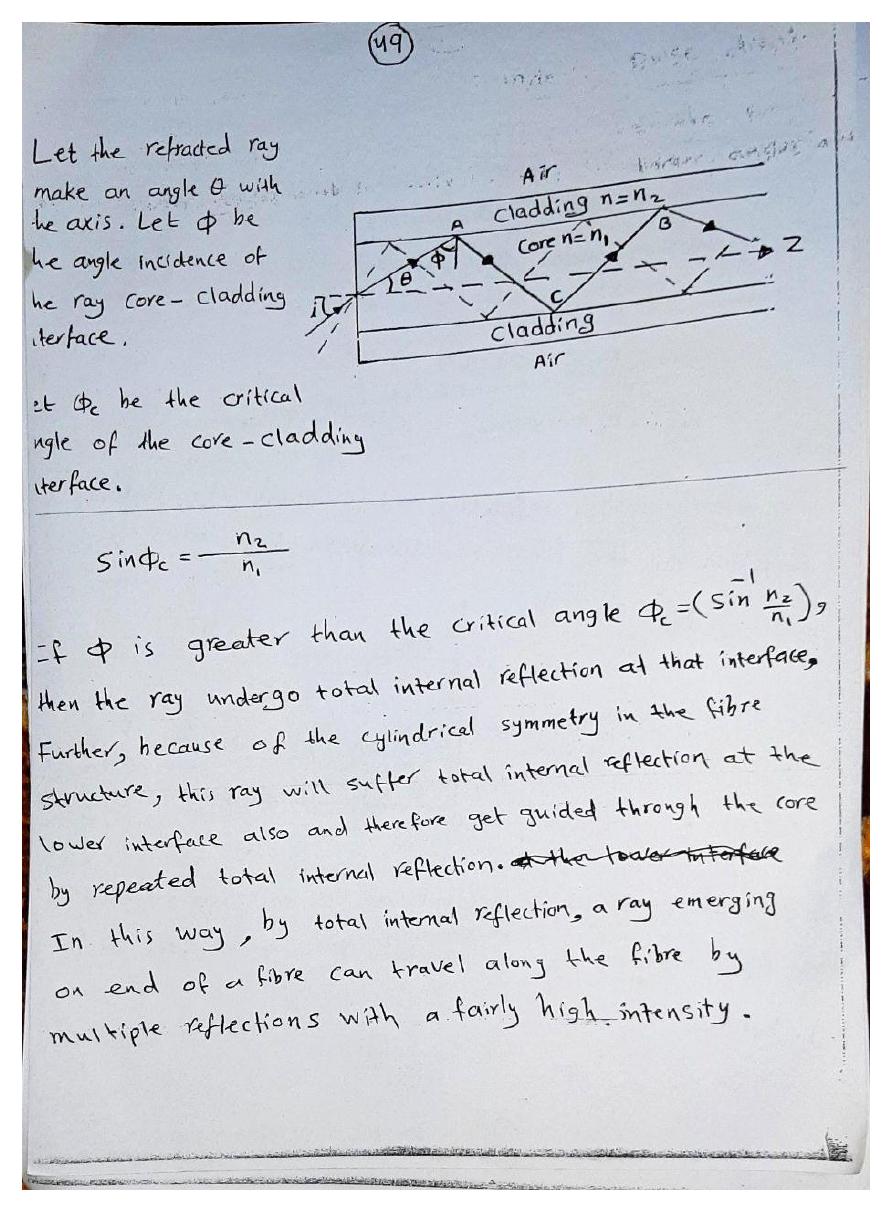 49
Let the refracted ray
make an angle θ with
he axis. Let ϕ be
he angle incidence of
he ray core - cladding
terface.
Air
Cladding n=n₂
A
B
Core n=n₁
ϕ
θ
Z
C
Cladding
Air
et ϕc be the critical
ngle of the core - cladding
terface.
Sinϕc = n₂/n₁
If ϕ is greater than the critical angle ϕc=(Sin⁻¹ n₂/n₁),
then the ray undergo total internal reflection at that interface,
Further, because of the cylindrical symmetry in the fibre
structure, this ray will suffer total internal reflection at the
lower interface also and therefore get guided through the core
by repeated total internal reflection. at the lower interface
In this way, by total internal reflection, a ray emerging
on end of a fibre can travel along the fibre by
multiple reflections with a fairly high intensity.